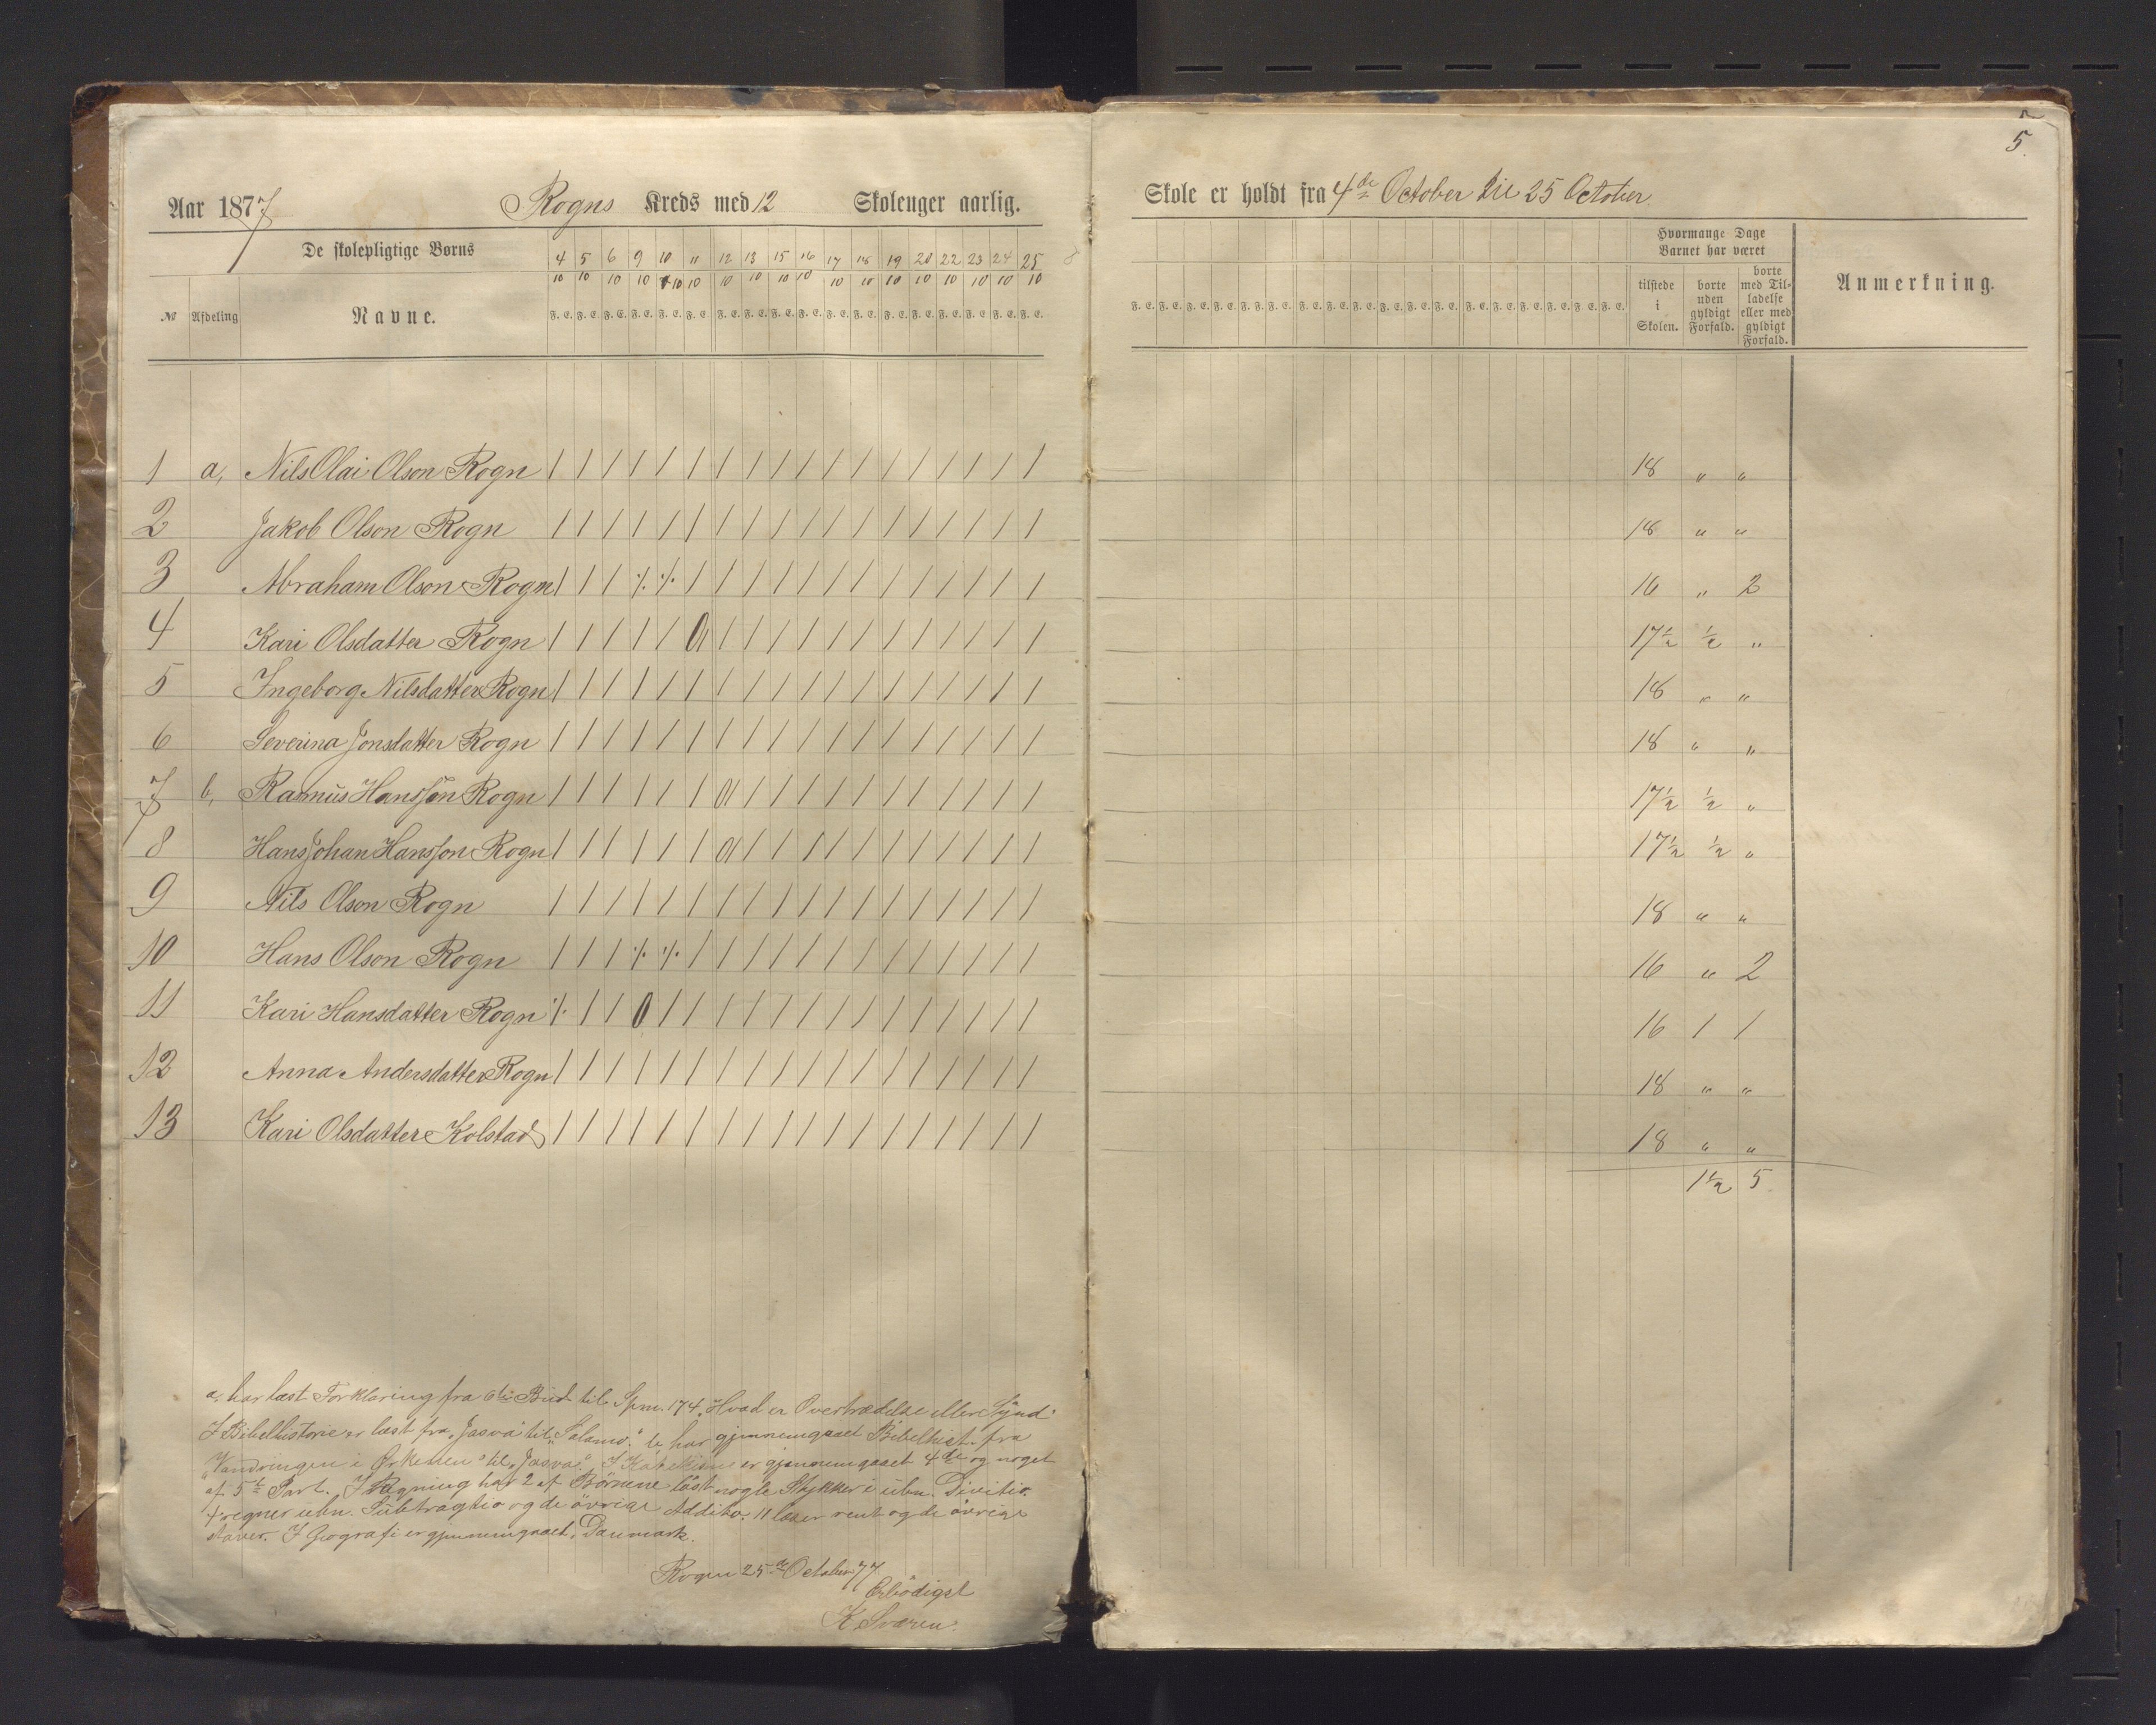 5
Aar 1877 Rogns Kreds med 12 Skoleuger aarlig.
Skole er holdt fra 4de October til 25 October
De skolepligtige Børns
4 5 6 9 10 11 12 13 15 16 17 18 19 20 22 23 24 25
10 10 10 10 10 10 10 10 10 10 10 10 10 10 10 10 10 10
№ Afdeling Navne. F. E. F. E. F. E. F. E. F. E. F. E. F. E. F. E. F. E. F. E. F. E. F. E. F. E. F. E. F. E. F. E. F. E. F. E.
F. E. F. E. F. E. F. E. F. E. F. E. F. E. F. E. F. E. F. E. F. E. F. E. F. E. F. E. F. E. F. E. F. E. F. E.
Hvormange Dage
Barnet har været
tilstede
i
Skolen.
borte
uden
gyldigt
Forfald.
borte
med Til-
ladelse
eller med
gyldigt
Forfald.
Anmerkning.
1 a, Nils Olai Olson Rogn / / / / / / / / / / / / / / / / / / 18 " "
2 Jakob Olson Rogn / / / / / / / / / / / / / / / / / / 18 " "
3 Abraham Olson Rogn / / / ٪ ٪ / / / / / / / / / / / / / 16 " 2
4 Kari Olsdatter Rogn / / / / / a / / / / / / / / / / / / 17½ ½ "
5 Ingeborg Nilsdatter Rogn / / / / / / / / / / / / / / / / / / 18 " "
6 Severina Jonsdatter Rogn / / / / / / / / / / / / / / / / / / 18 " "
7 b, Rasmus Hansson Rogn / / / / / / a / / / / / / / / / / / 17½ ½ "
8 Hans Johan Hansson Rogn / / / / / / a / / / / / / / / / / / 17½ ½ "
9 Nils Olson Rogn / / / / / / / / / / / / / / / / / / 18 " "
10 Hans Olson Rogn / / / ٪ ٪ / / / / / / / / / / / / / 16 " 2
11 Kari Hansdatter Rogn ٪ / / 0 / / / / / / / / / / / / / / 16 1 1
12 Anna Andersdatter Rogn / / / / / / / / / / / / / / / / / / 18 " "
13 Kari Olsdatter Kolstad / / / / / / / / / / / / / / / / / / 18 " "
1½ 5
a. har læst Forklaring fra 6te Bud til Spm. 174. Hvad er Overtrædelse eller Synd.
I Bibelhistorie er læst fra "Josva" til "Salomo." b, har gjennemgaaet Bibelhist. fra
"Vandringen i Ørkenen" til "Josva". I Katekisme er gjennemgaaet 4de og noget
af 5te Part. I Regning har 2 af Børnene löst nogle Stykker i ubn. Divitio.
4 regner ubn. Subtragtio og de övrige Additio. 11 læser rent og de övrige
staver. I Geografi er gjennemgaaet, Danmark.
Rogn 25de October 77
Erbödigst
K. Sværen.